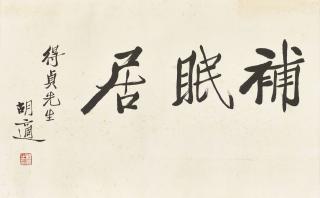 補眠居
得貞先生
胡適